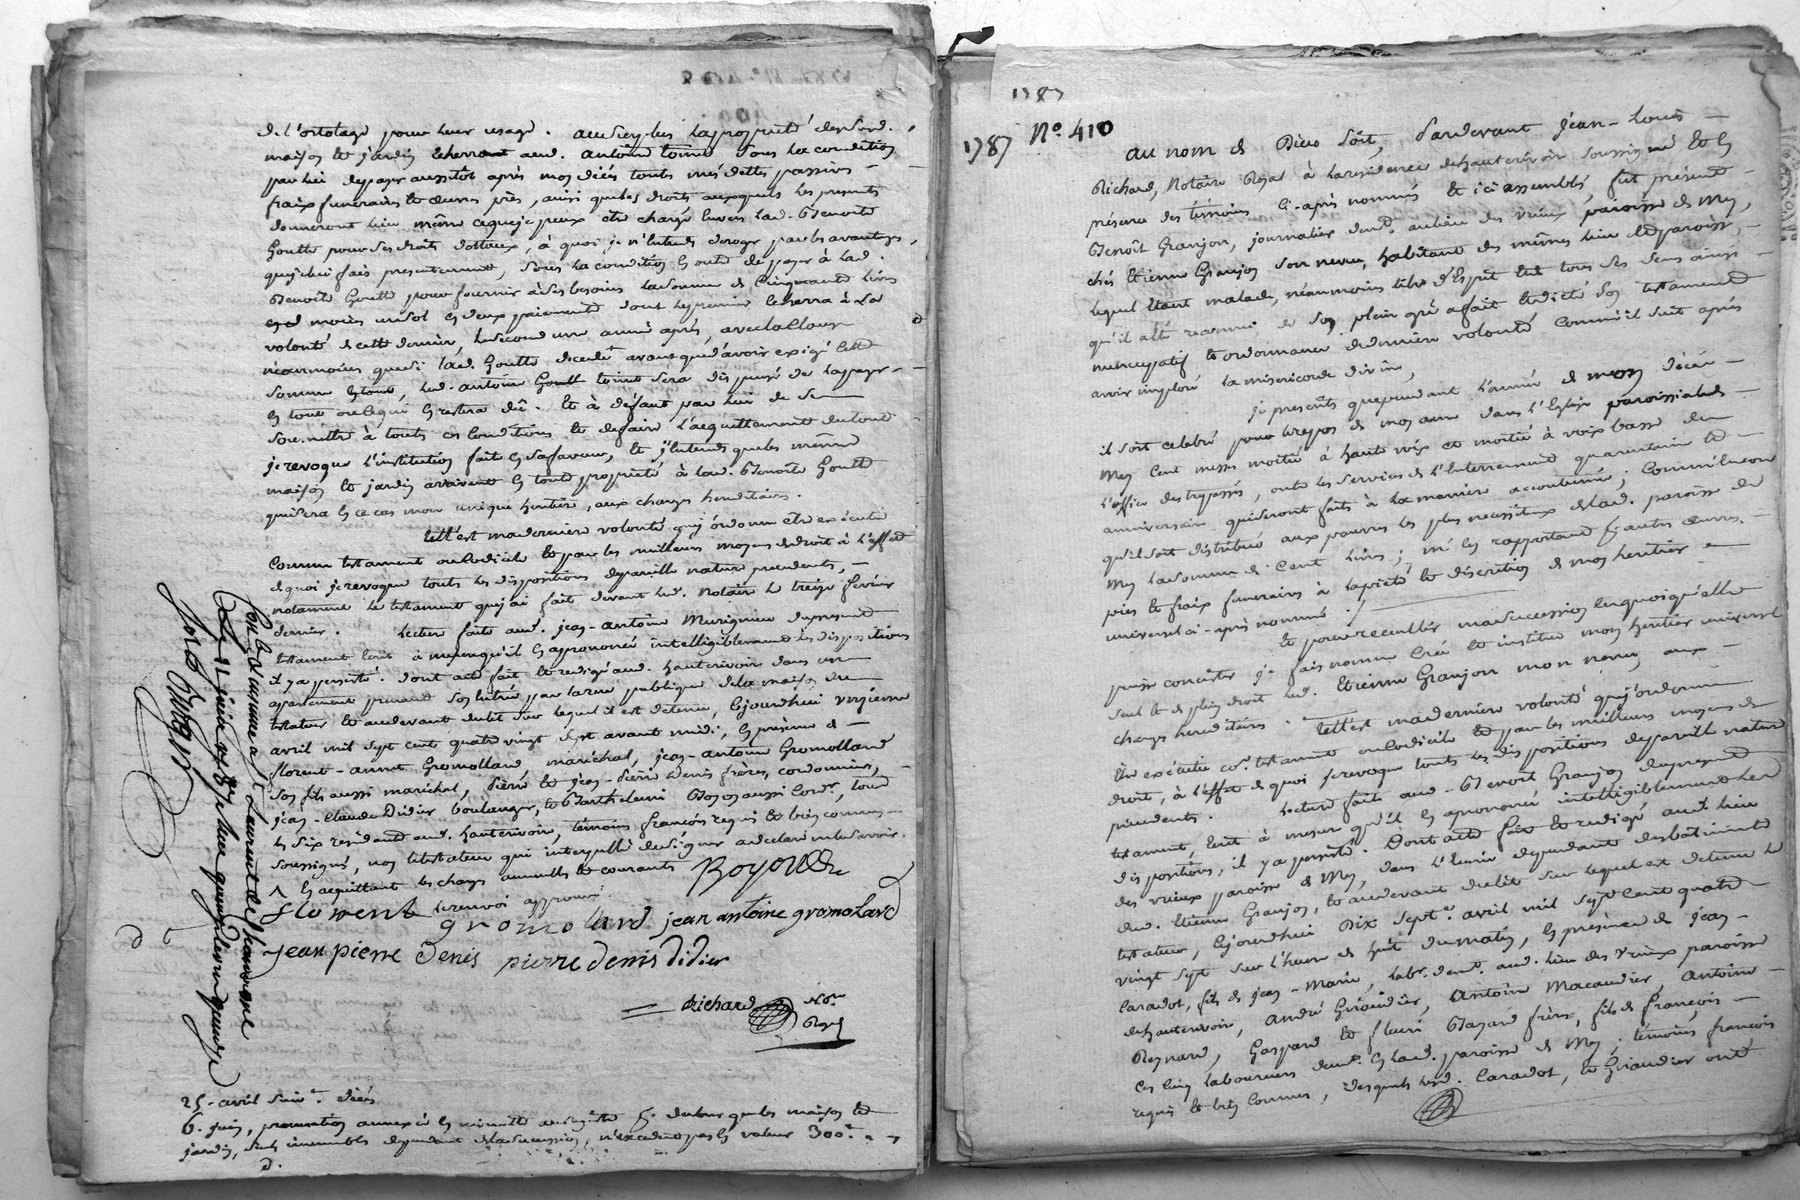 de l'ortolage pour leur usage. au surplus la propriété desd.
maison et jardin echerront aud. antoine tonne sous la condition
par lui de payer aussitôt après mon décès toutes mes dettes passives
fraix funeraires et œuvres pies, ainsi que les droits auxquels les presents
donneront lieu, même ce que je peux etre chargé envers lad. Benoite
Goutte pour ses droits dottaux, à quoi je n'entends deroger par les avantages
que je lui fais presentement, sous la condition en outre de payer à lad.
Benoite Goutte pour fournir à ses besoins la somme de Cinquante livres
en deux paiements dont le premier echerra à la
volonté de cette derniere, le second une année après, avec la clause
néanmoins que si lad. Goutte decede avant que d'avoir exigé cette
somme en tout, led. antoine tonne sera dispensé de la payer
en tout ou ce qui en restera dû. Et à défaut par lui de se
soumettre à toutes ces conditions et de faire l'acquittement du tout
je revoque l'institution faite en sa faveur, et j'entends que les mêmes
maison et jardin arrivent en toute propriété à lad. Benoite Goutte
qui sera en ce cas mon unique heritiere, aux charges hereditaires.
telle est ma derniere volonté que j'ordonne etre executée
comme testament ou codicile et par les meilleurs moyens de droit à l'effet
de quoi je revoque toutes les dispositions de pareille nature precedentes,
notament le testament que j'ai fait devant led. notaire le treize fevrier
dernier. Lecture faite aud. jean-antoine du present
testament écrit à mesure qu'il en a prononcé intelligiblement les dispositions
il y a persisté. dont acte fait et redigé aud. hauterivoir dans un
apartement prenant son entrée par la rue publique de la maison du
testateur et au devant du lit sur lequel il est detenu, cejourd'hui onzieme
avril mil sept cent quatre vingt sept avant midi, en presence de
florent-annet Gromolland maréchal, jean-antoine Gromolland
son fils aussi maréchal, pierre et jean-pierre Denis freres, cordonniers,
jean-Claude Didier boulanger, et Barthelemi Boyon aussi cordr, tous
les six residents aud. hauterivoir, témoins françois requis et bien connus
soussignés, non le testateur qui interpellé de signer a declaré ne le savoir.
^ en acquittant les charges annuelles et courantes Boyon
florent le renvoi approuvé
gromolard jean antoine gromolard
jean pierre denis pierre denis didier
Richard Nore
Royal
25. avril suivt. décés
6. juin, promotion annexée en minute
jardin, seuls immeubles dependants de la succession, n'excedent pas la valeur 300#.
Con.lé et insinué a St Laurent de Chamousset
Le 11 juin 1787 reçu quinze livres quinze s.
1787
1787 No. 410
au nom de Dieu soit, Pardevant Jean-Louis
Richard, Notaire Royal à la residence de hauterivoir soussigné et en
présence des témoins ci-après nommés et ici assemblés, fut présent
Benoit Granjon, journalier demt. au lieu des vieux paroisse de Mey,
chés Etienne Granjon son neveu, habitant des mêmes lieu et paroisse,
lequel étant malade, néanmoins libre d'Esprit et de tous ses sens ainsi
qu'il a été reconnu de son plein gré a fait et dicté son testament
nuncupatif et ordonnance de derniere volonté comme il suit après
avoir imploré la misericorde divine,
je prescris que pendant l'année de mon décès
il soit celebré pour le repos de mon ame dans l'Eglise paroissiale de
Mey Cent messes moitié à haute voix et moitié à voix basse de
l'office des trepassés, outre les services de l'Enterrement quarantaine et
anniversaire qui seront faits à la maniere accoutumée; Comme encore
qu'il soit distribué aux pauvres les plus necessiteux de lad. paroisse de
Mey la somme de Cent livres; m'en rapportant pr. autres œuvres
pies et fraix funeraires à la pieté et discretion de mon heritier
universel ci-après nommé.
Et pour recueillir ma succession en quoi qu'elle
puisse consister je fais nomme crée et institue mon heritier universel
seul et de plein droit led. Etienne Granjon mon neveu, aux
charges hereditaires. Telle est ma derniere volonté que j'ordonne
être executée co. testament ou codicile et par les meilleurs moyens de
droit, à l'effet de quoi je revoque toutes les dispositions de pareille nature
precedentes. Lecture faite aud. Benoit Granjon du present
testament, écrit à mesure qu'il en a prononcé intelligiblement les
dispositions, il y a persisté. Dont acte fait et redigé aud. lieu
des vieux paroisse de Mey, dans l'Ecurie dependante des batiments
dud. Etienne Granjon, et au devant du lit sur lequel est detenu le
testateur, cejourd'hui Dix sept. avril mil sept cent quatre
vingt sept sur l'heure de huit du matin, en présence de jean
Caradot, fils de jean-Marie, labr. demt. aud. lieu des vieux paroisse
de hauterivoir, André Giraudier, Antoine Macaudier, Antoine
Reynard, Gaspard et fleuri Bazard freres, fils de françois
Ces cinq laboureurs demt. en lad. paroisse de Mey; témoins françois
requis et bien connus, desquels lesd. Caradot, et Giraudier ont